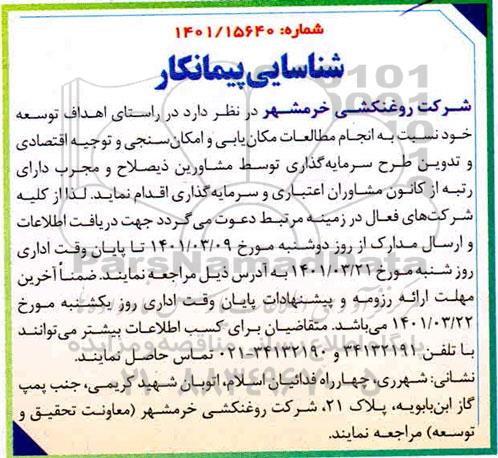 شماره: ۱۴۰۱/۱۵۶۴۰
شناسایی پیمانکار
شرکت روغنکشی خرمشهر در نظر دارد در راستای اهداف توسعه
خود نسبت به انجام مطالعات مکان‌یابی و امکان‌سنجی و توجیه اقتصادی
و تدوین طرح سرمایه‌گذاری توسط مشاورین ذیصلاح و مجرب دارای
رتبه از کانون مشاوران اعتباری و سرمایه‌گذاری اقدام نماید. لذا از کلیه
شرکت‌های فعال در زمینه مرتبط دعوت می‌گردد جهت دریافت اطلاعات
و ارسال مدارک از روز دوشنبه مورخ ۱۴۰۱/۰۳/۰۹ تا پایان وقت اداری
روز شنبه مورخ ۱۴۰۱/۰۳/۲۱ به آدرس ذیل مراجعه نمایند. ضمناً آخرین
مهلت ارائه رزومه و پیشنهادات پایان وقت اداری روز یکشنبه مورخ
۱۴۰۱/۰۳/۲۲ می‌باشد. متقاضیان برای کسب اطلاعات بیشتر می‌توانند
با تلفن ۳۴۱۳۲۱۹۱ و ۳۴۱۳۲۱۹۰-۰۲۱ تماس حاصل نمایند.
نشانی: شهرری، چهارراه فدائیان اسلام، اتوبان شهید کریمی، جنب پمپ
گاز ابن‌بابویه، پلاک ۲۱، شرکت روغنکشی خرمشهر (معاونت تحقیق و
توسعه) مراجعه نمایند.
ParsNamadData